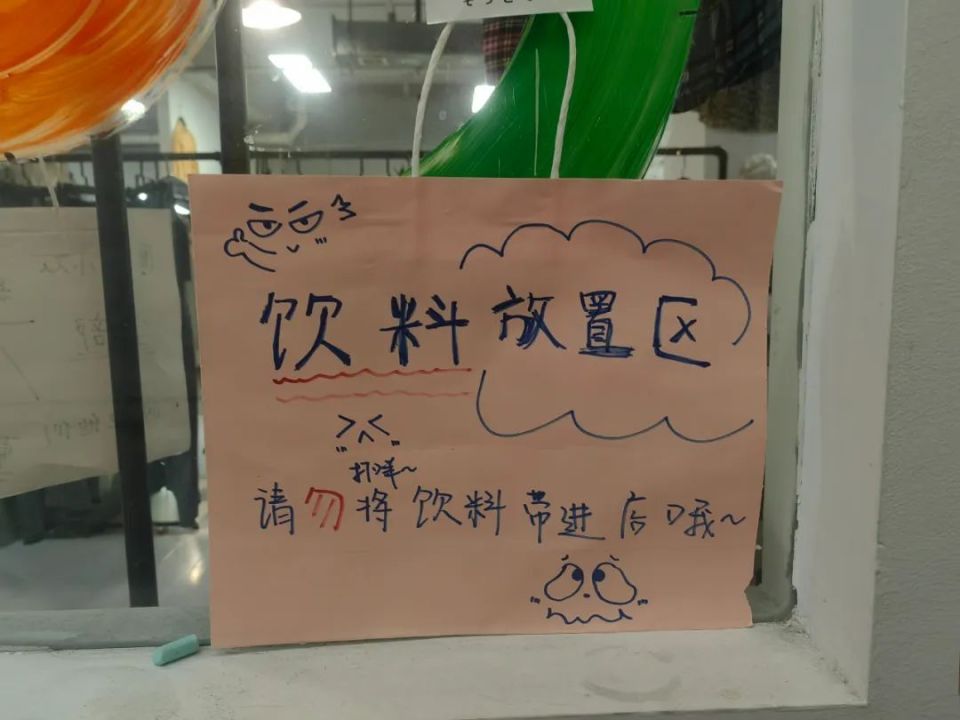 饮料放置区
打烊~
请勿将饮料带进店哦~